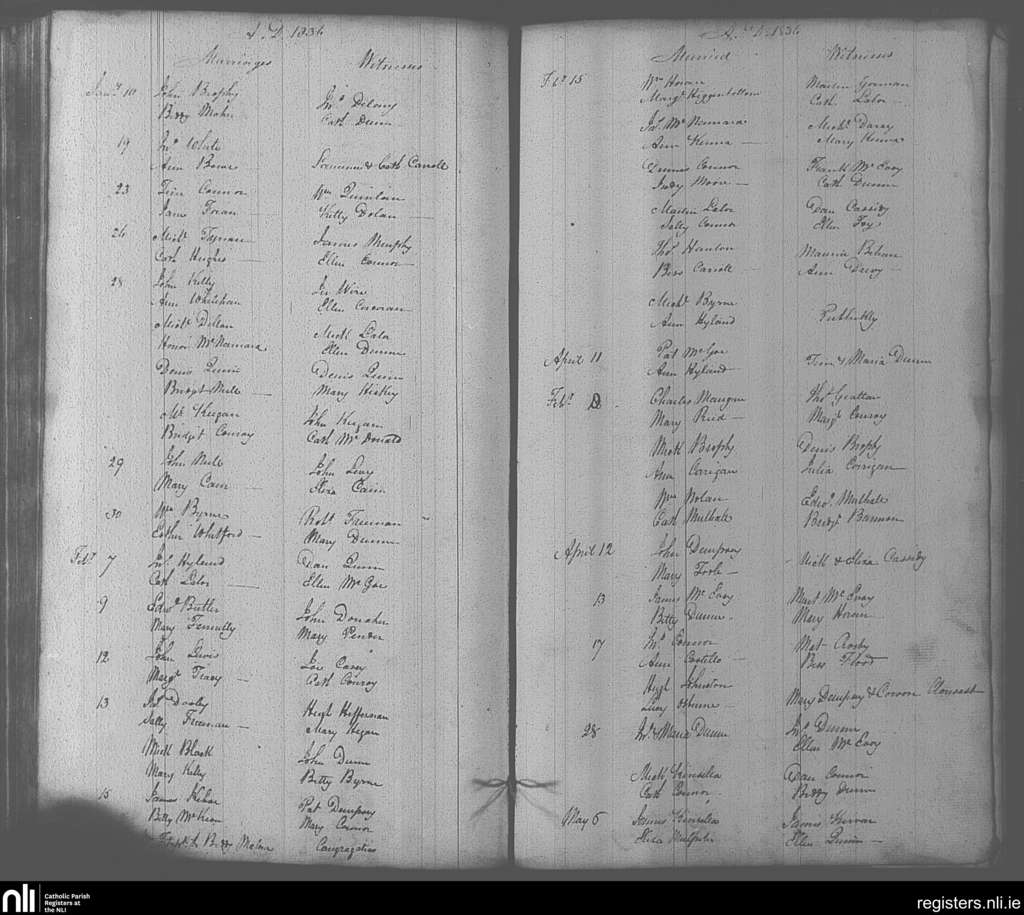 A.D. 1836
Marriages Witnesses
Jany 10 John Brophy Jno Delany
Bizzy Maher Cath Dunn
19 Jno White
Ann Bowe & Cath Carroll
23 Tim Connor Wm Quinlan
Jane Foran Kitty Dolan
26 Michl Tynan James Murphy
Cath Hughes Ellen Connor
28 John Kelly
Ann Whelehan Ellen Corcoran
Michl Dillon Mick Lalor
Honor McNamara Ellen Dunne
Denis Quinn Denis Quinn
Bridgt Mule Mary Hickey
Keegan John Keegan
Bridgt Conroy Cath McDonald
29 John Mule John
Mary Cain Eliza Cain
30 Wm Byrne Robt Freeman
Esther Whitford Mary Dunne
Feby 7 Jno Hyland Dan Quinn
Cath Lalor Ellen McGee
9 Edwd Butler John Donaher
Mary Fennelly Mary Pender
12 John Lewis Joe Carey
Margt Tracy Cath Conroy
13 Pat Dooley Hugh Heffernan
Sally Freeman Mary Hegan
Mick Black John Dunn
Mary Kelly Betty Byrne
15 James Pat Dempsey
Betty McKeon Mary Connor
& Bizzy Maher Congregation
A.D. 1836
Married Witnesses
Feb 15 Wm Horan Martin Gorman
Margt Higgenbottom Cath Lalor
Jas McNamara Michl Darcy
Ann Kenna Mary Kenna
Dennis Connor Frank McEvoy
Judy Moore Cath Dunne
Martin Lalor Dan Cassidy
Sally Connor Ellen Foy
Thos Hanlon Maurice Behan
Bess Carroll Ann Deevy
Michl Byrne
Ann Hyland Publickly
April 11 Pat McGee Tim & Maria Dunne
Ann Hyland
Feby Charles Mangan Thos Grattan
Mary Reid Margt Conroy
Mick Brophy Denis Brophy
Ann Corrigan Julia Corrigan
Wm Nolan Edwd Mulhall
Cath Mulhall Bridgt Bannon
April 12 John Dempsey Mick & Eliza Cassidy
Mary Toole
13 James McEvoy Mart McEvoy
Betty Dunne Mary Horan
17 Jno Connor Mat Crosby
Ann Costello Bess Flood
Hugh Johnston Mary Dempsey &
Lucy
28 Jno & Maria Dunn Jno Dunne
Ellen McEvoy
Mick Kinselia Dan Connor
Cath Connor Bizzy Dunne
May 5 James Kinselia James
Eliza Ellen Quinn
nli Catholic Parish
Registers at
the NLI
registers.nli.ie